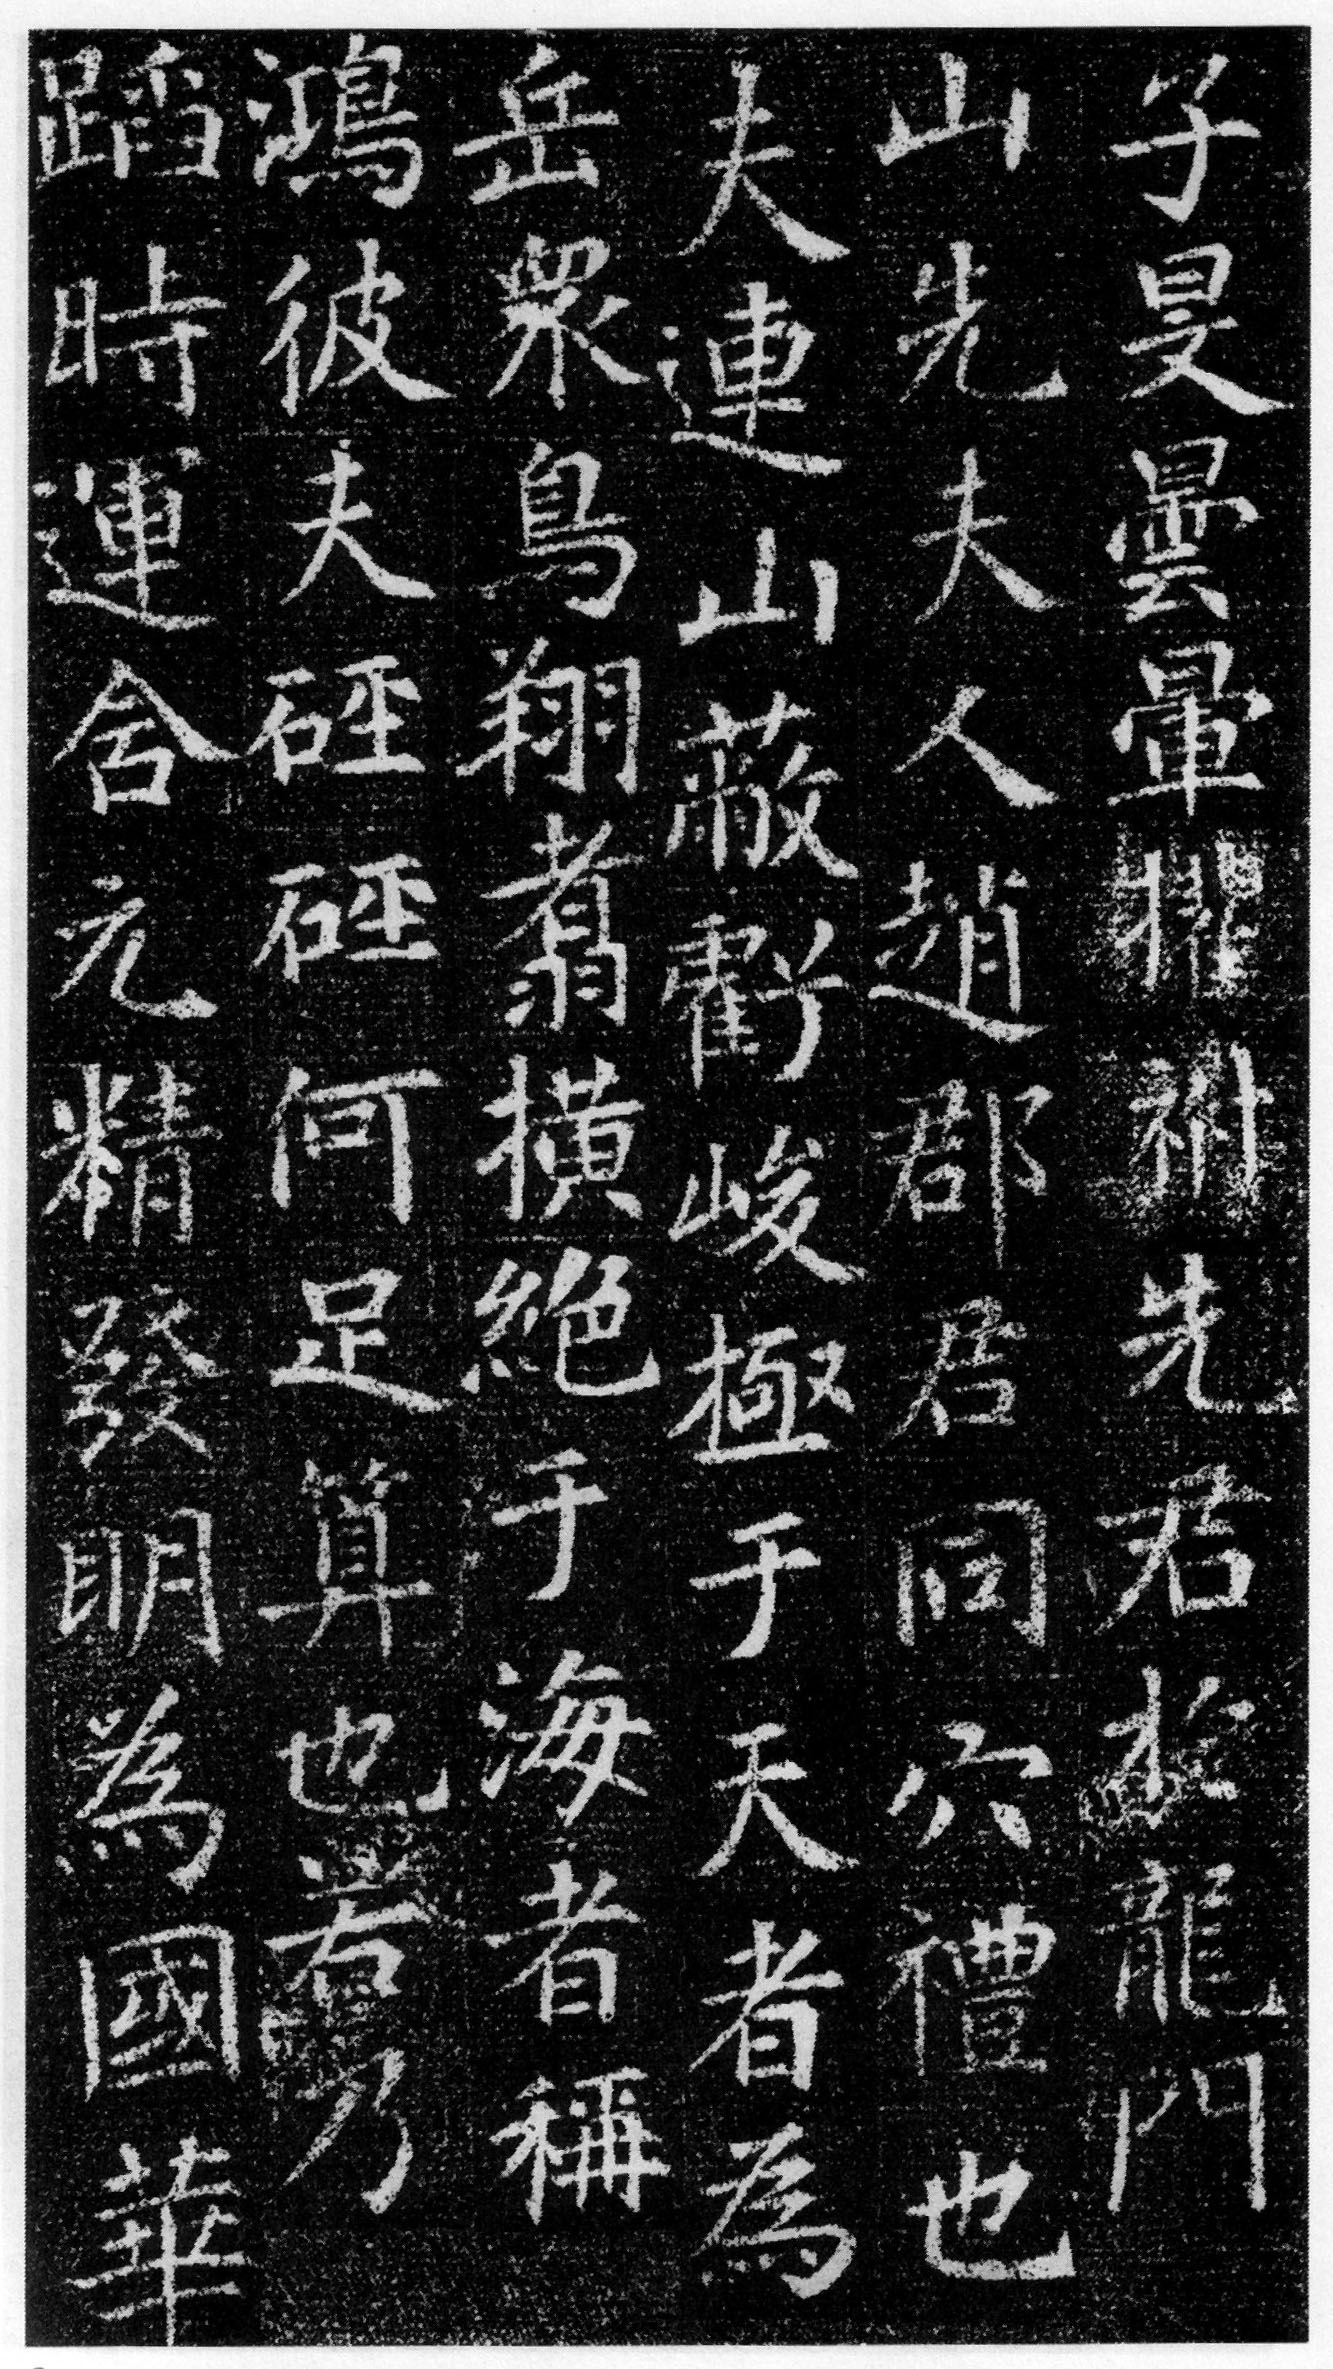 子旻曇暈擢祔先君於龍門
山先夫人趙郡君同穴禮也
夫連山蔽虧峻極于天者為
岳衆鳥翔翥橫絕于海者稱
鴻彼夫硜硜何足算也若乃
蹈時運含元精發明為國華